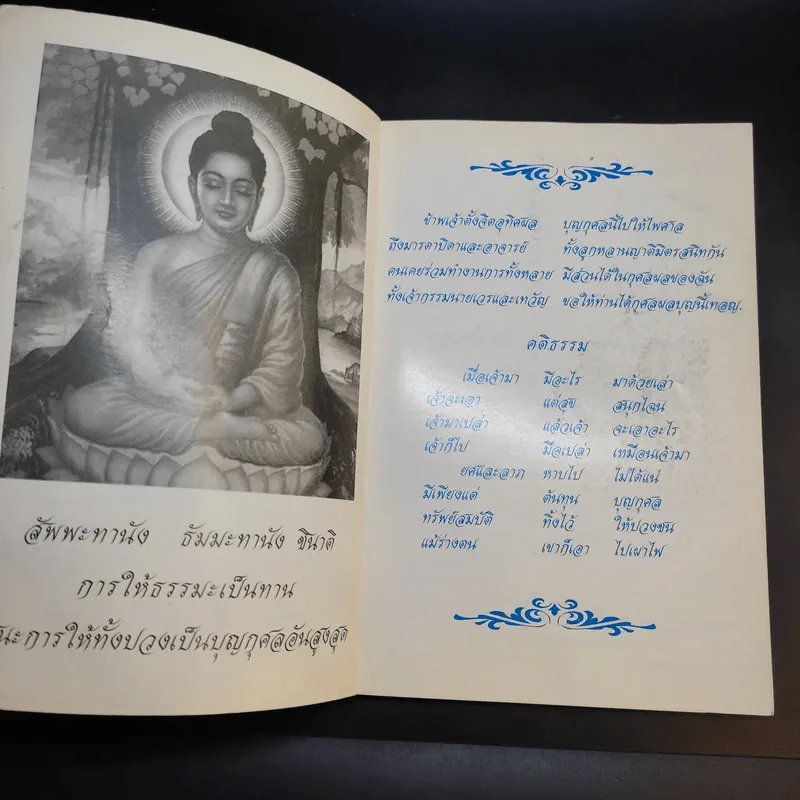 สัพพะทานัง ธัมมะทานัง ชินาติ
การให้ธรรมะเป็นทาน
นะการให้ทั้งปวงเป็นบุญกุศลอันสูงสุด
ข้าพเจ้าตั้งจิตอุทิศผล บุญกุศลนี้ไปให้ไพศาล
ถึงมารดาบิดาและอาจารย์ ทั้งลูกหลานญาติมิตรสนิทกัน
คนเคยร่วมทำงานการทั้งหลาย มีส่วนได้ในกุศลผลของฉัน
ทั้งเจ้ากรรมนายเวรและเทวัญ ขอให้ท่านได้กุศลผลบุญนี้เทอญ.
คติธรรม
เมื่อเจ้ามา มีอะไร มาด้วยเล่า
เจ้าจะเอา แต่สุข สนุกไฉน
เจ้ามาเปล่า แล้วเจ้า จะเอาอะไร
เจ้าก็ไป มือเปล่า เหมือนเจ้ามา
ยศและลาภ หาบไป ไม่ได้แน่
มีเพียงแต่ ต้นทุน บุญกุศล
ทรัพย์สมบัติ ทิ้งไว้ ให้ปวงชน
แม้ร่างตน เขาก็เอา ไปเผาไฟ